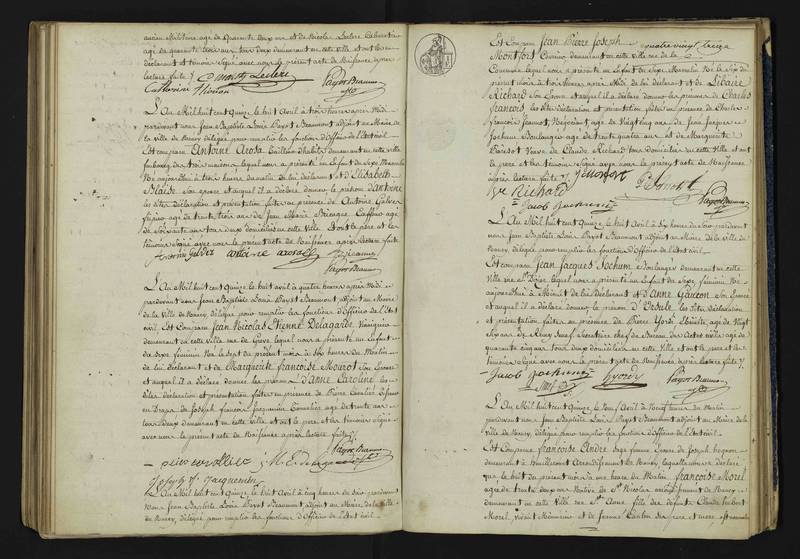 ancien Militaire agé de quarante deux ans et de Nicolas Leclerc Cabaretier
agé de quarante trois ans tous deux demeurant en cette ville et ont les
déclarant et témoins signé avec nous le présent acte de Naissance après
lecture faite
Leclere
Payot Beaumont
Catherine
L'An Mil huit cent Quinze le huit Avril à trois heures après Midi
pardevant nous Jean Baptiste Louis Payot Beaumont adjoint au Maire de
la ville de Nancy délégué pour remplir les fonctions d'Officier de l'état civil
Est comparu Antoine Arosa Tailleur d'habits demeurant en cette ville
faubourg des trois maisons lequel nous a présenté un Enfant du sexe Masculin
Né aujourd'hui à trois heures du matin de lui déclarant et d'Elisabeth
Blaise son épouse et auquel il a déclaré donner le prénom d'Antoine
les dites déclaration et présentation faites en présence de Antoine Galver
agé de trente trois ans de Jean Marie
de soixante ans tous deux domiciliés en cette ville et ont le père et les
témoins signé avec nous le présent acte de Naissance après lecture faite
Payot Beaumont
L'An Mil huit cent Quinze le huit avril à quatre heures après Midi
pardevant nous Jean Baptiste Louis Payot Beaumont adjoint au Maire
de la Ville de Nancy délégué pour remplir les fonctions d'Officier de l'Etat
civil Est Comparu Jean Nicolas Etienne Delagarde Vinaigrier
demeurant en cette ville rue de Grève lequel nous a présenté un Enfant
du sexe féminin Né le sept du présent mois à six heures du Matin
de lui déclarant et de Marguerite françoise Mourot son Epouse
et auquel il a déclaré donner les prénoms d'Anne Caroline les
dites déclaration et présentation faites en présence de Pierre
en Draps de Joseph françois Jacquemin Tonnelier agé de trente
ans tous deux demeurant en cette ville et ont le père et les témoins signé
avec nous le présent acte de Naissance après lecture faite
Payot Beaumont
Joseph f. Jacquemin
L'An Mil huit cent Quinze le huit Avril à cinq heures du soir pardevant
nous Jean Baptiste Louis Payot Beaumont adjoint au Maire de la Ville
de Nancy, délégué pour remplir les fonctions d'Officier de l'Etat civil
quatre vingt treize
Est Comparu Jean Pierre Joseph
Montfort demeurant en cette ville rue de la
lequel nous a présenté un Enfant du sexe Masculin Né le six du
présent mois à trois heures après Midi de lui déclarant et de Libaire
Richard son Epouse et auquel il a déclaré donner les prénoms de Charles
François, les dites déclaration et présentation faites en présence de Charles
François Jeannot, Négociant, agé de vingt cinq ans de Jean Jacques
Jochum Boulanger agé de trente quatre ans et de Marguerite
Veuve de Claude Richard tous domiciliés en cette ville et ont
le père et les témoins signé avec nous le présent acte de Naissance
après lecture faite
Ve Richard
Jacob Jochum
Payot Beaumont
L'An Mil huit cent Quinze le huit Avril à six heures du soir pardevant
nous Jean Baptiste Louis Payot Beaumont adjoint au Maire de la Ville de
Nancy, délégué pour remplir les fonctions d'Officier de l'Etat civil
Est comparu Jean Jacques Jochum Boulanger demeurant en cette
Ville rue St Dizier lequel nous a présenté un Enfant du sexe féminin Né
aujourd'hui à Minuit de lui déclarant et d'Anne Garcon son Epouse
et auquel il a déclaré donner le prénom d'Ursule les dites déclaration
et présentation faites en présence de Pierre Yordi Ebéniste, agé de vingt
six ans de Remy Secrétaire chef du Bureau des Actes civils agé de
quarante cinq ans tous deux domiciliés en cette ville et ont le père et les
témoins signé avec nous le présent acte de Naissance après lecture faite
Jacob Jochum
Yordi
Payot Beaumont
L'An Mil huit cent Quinze le Neuf Avril à Neuf heures du Matin
pardevant nous Jean Baptiste Louis Payot Beaumont adjoint au Maire de la
Ville de Nancy, délégué pour remplir les fonctions d'Officier de l'Etat civil
Est Comparue françoise André Sage femme Epouse de Joseph
demeurant à Bouxières Arrondissement de Nancy laquelle nous a déclaré
que le huit du présent mois à une heure du Matin françoise Morel
agée de trente deux ans Native de St Nicolas arrondissement de Nancy
demeurant en cette Ville rue Ste Anne fille des défunts Claude
Morel, vivant et Jeanne ses père et mère est